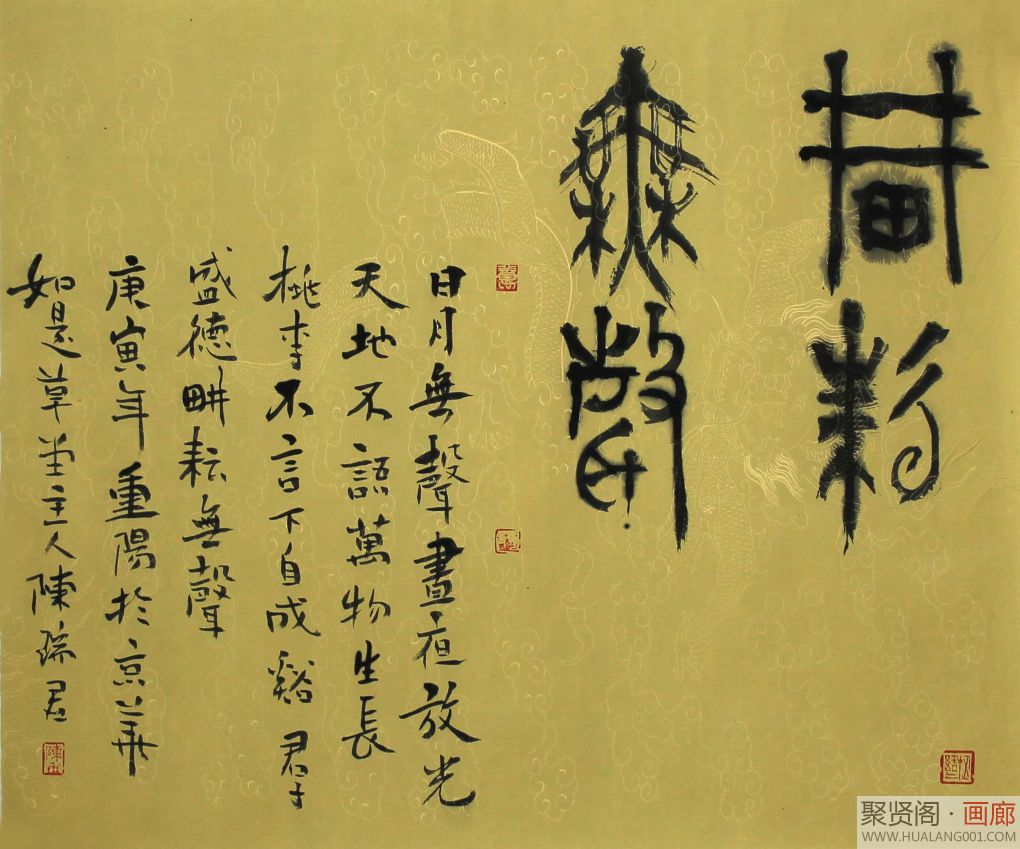 畊耘
無聲
日月無聲晝夜放光
天地不語萬物生長
桃李不言下自成谿君子
盛德畊耘無聲
庚寅年重陽於京華
如是草堂主人陳瑞君
聚贤阁·画廊
WWW.HUALANG001.COM